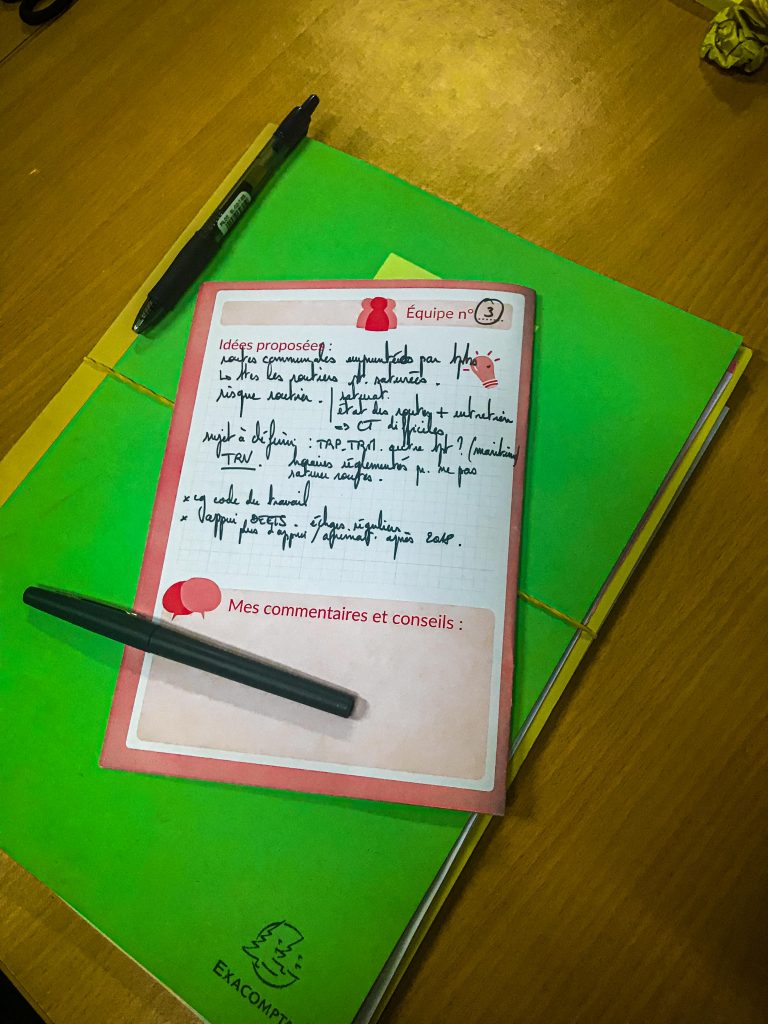 Équipe n° 3
Idées proposées :
routes communales empruntées par
les routiers pt. saturées.
risque routier. / saturat.
état des routes + entretien
=> CT difficiles
sujet à définir : TRP. TRM. autre tpt ? (maritime)
TRV. horaires réglementés p. ne pas
saturer routes.
* cg code du travail
* appui DEETS. échges réguliers
plus d'appui / après 2018.
Mes commentaires et conseils :
EXACOMPTA